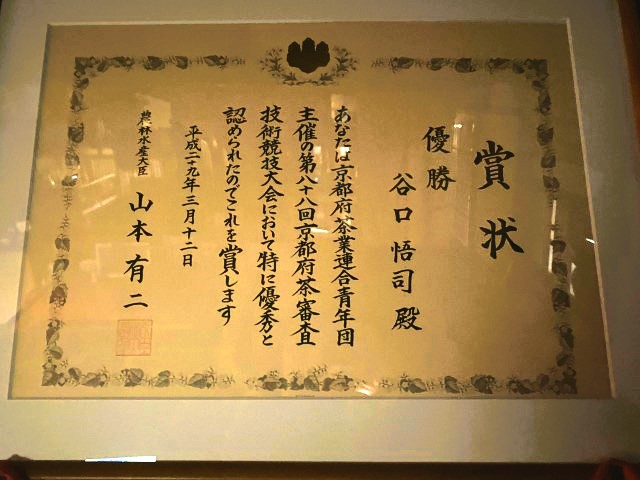 賞状
優勝
谷口悟司殿
あなたは京都府茶業連合青年団
主催の第八十八回京都府茶審査
技術競技大会において特に優秀と
認められたのでこれを賞します
平成二十九年三月十二日
農林水産大臣 山本有二